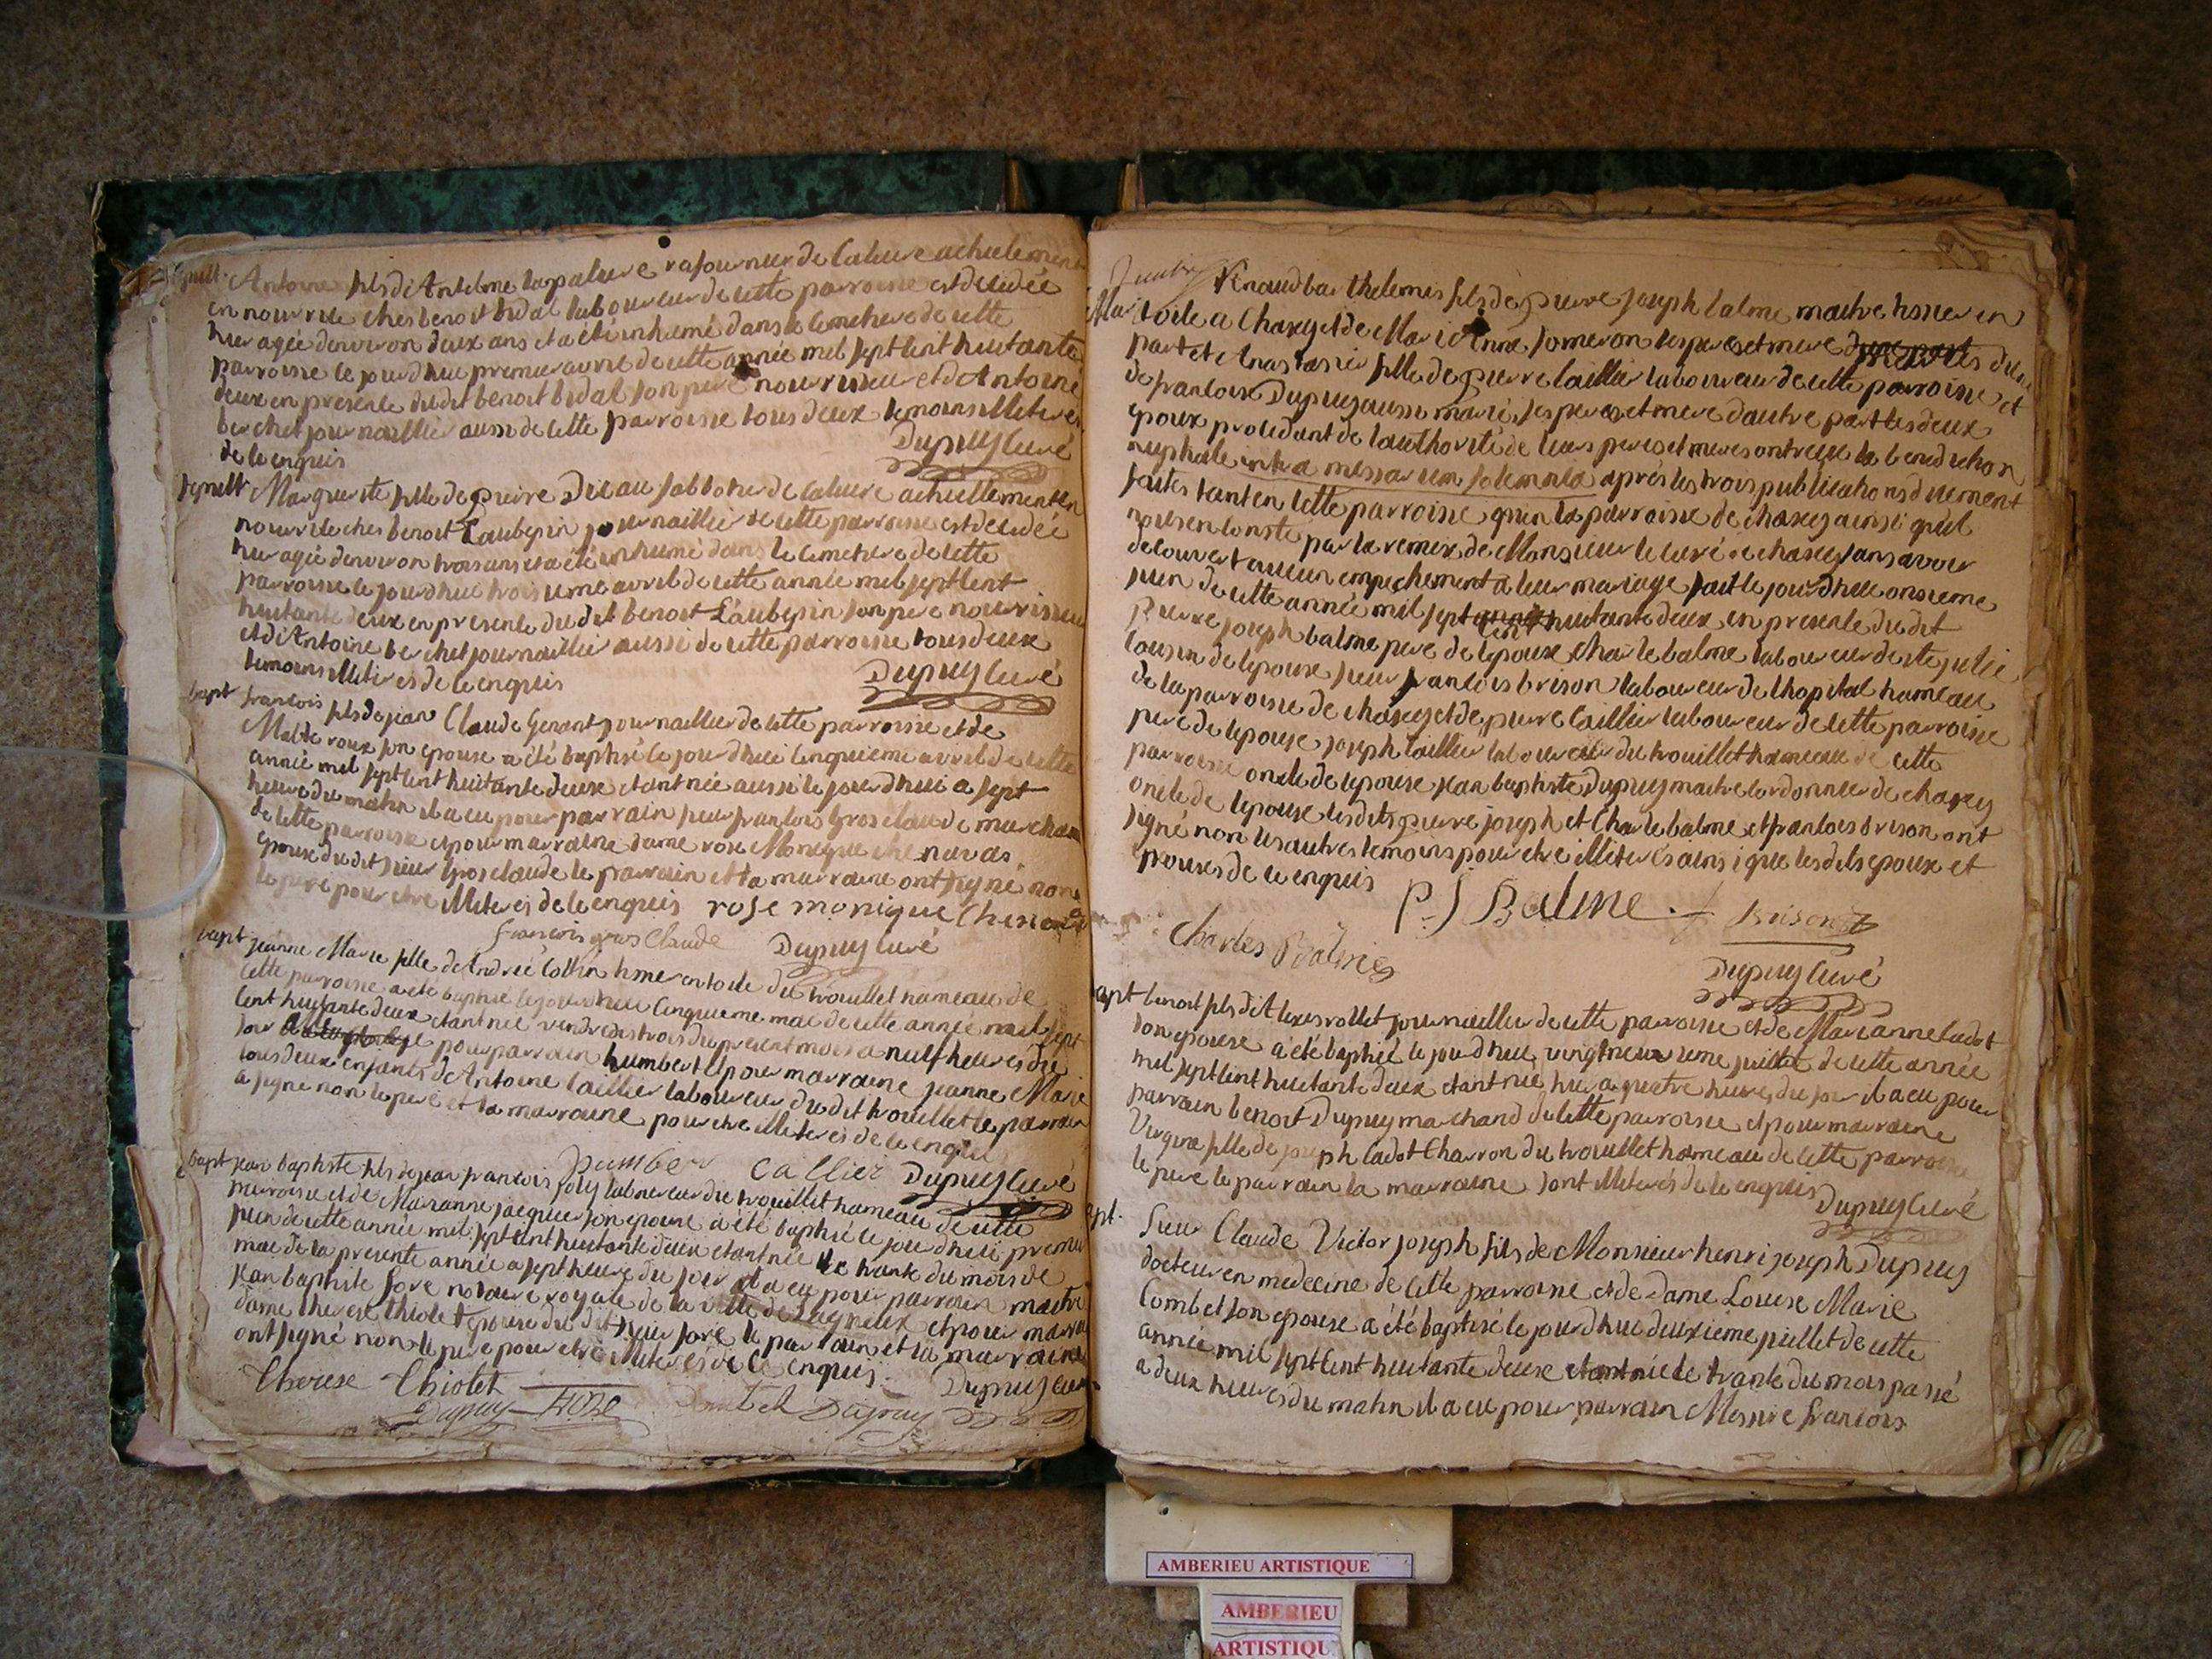 Antoine fils di Antelme lapalure de la cure actuelement
en nourrice ches benoit bidal laboureur de cette parroisse est decédée
hier agée denviron deux ans et a été inhumé dans le cimetiere de cette
parroisse le jourdhui premier avril de cette année mil sept cent huitante
deux en presence du dit benoit bidal son pere nourrissieur et di Antoine
berchet journaillier aussi de cette parroisse tous deux temoins illiteres
de ce enquis
Dupuy curé
sepult Marguerite fille de pierre actuellement en
nourrice ches benoit Laubepin journaillier de cette parroisse est decedée
hier agée denviron trois ans et a été inhumé dans le cimetiere de cette
parroisse le jourdhui troisieme avril de cette année mil sept cent
huitante deux en presence du dit benoit Laubepin son pere nourrissieur
et di Antoine berchet journaillier aussi de cette parroisse tous deux
temoins illiteres de ce enquis
Dupuy curé
bapt françois fils de jean Claude Genant journaillier de cette parroisse et de
roux son epouse a été baptisé le jourdhui cinquieme avril de cette
année mil sept cent huitante deux etant née aussi le jourdhui a sept
heure du matin il a eu pour parrain sieur francois Grosclaude marchand
de cette parroisse et pour marraine dame rose Monique chenavas
epouse du dit sieur grosclaude le parrain et la marraine ont signé non
le pere pour etre illiteres de ce enquis rose monique Chenavas
francois gros Claude Dupuy curé
bapt jeanne Marie fille de André Collin tisier en toile du trouillet hameau de
cette parroisse a été baptisé le jourdhui cinquieme mai de cette année mil sept
cent huitante deux etant née vendredi trois du present mois a neuf heures du
soir pour parrain humbert et pour marraine jeanne Marie
tous deux enfants de Antoine Caillier laboureur du dit trouillet le parrain
a signé non le pere et la marraine pour etre illiteres de ce enquis
humber callier Dupuy curé
bapt jean baptiste fils de jean francois joly laboureur du trouillet hameau de cette
parroisse et de Marianne jacquier son epouse a été baptisé le jourdhui premier
juin de cette année mil sept cent huitante deux etant née le trante du mois de
mai de la presente année a sept heure du jour il a eu pour parrain maitre
jean baptiste fore notaire royale de la ville de Lagnieux et pour marraine
dame therese thiolet epouse du dit sieur fore le parrain et la marraine
ont signé non le pere pour etre illiteres de ce enquis.
Dupuy curé
therese thiolet
Dupuy fore Dupuy
Renaud barthelemis fils de pierre joseph balme maitre tisier en
Mar toile a Chazey et de Marie Anne someron ses peres et mere dune
part et Anastasie fille de pierre Caillier laboureur de cette parroisse et
de francoise Dupuy aussi mariés ses peres et mere dautre part les deux
epoux procedant de lauthorité de leurs peres et meres ont reçu la benediction
nuptiale intra missarum solemnia aprés les trois publications duement
faites tant en cette parroisse quen la parroisse de chazey ainsi quil
nous en conste par la remise de Monsieur le curé de chazey sans avoir
decouvert aucun empechement a leur mariage fait le jourdhui onsieme
juin de cette année mil sept cent huitante deux en presence du dit
pierre joseph balme pere de lepoux Charle balme laboureur de ste julie
cousin de lepoux sieur francois brison laboureur de lhopital hameau
de la parroisse de chazey et de pierre Caillier laboureur de cette parroisse
pere de lepouse joseph Caillier laboureur du trouillet hameau de cette
parroisse oncle de lepouse jean baptiste Dupuy maitre cordonnier de chazey
oncle de lepouse les dits pierre joseph et Charle balme et francois brison ont
signé non les autres temoins pour etre illiterés ainsi que les dits epoux et
epouse de ce enquis
P. J Balme. f Brison
Charles Balme
Dupuy curé
bapt benoit fils di Alexis rollet journaillier de cette parroisse et de Marianne Cadot
son epouse a été baptisé le jourdhui vingtneuvieme juillet de cette année
mil sept cent huitante deux etant née hier a quatre heures du soir il a eu pour
parrain benoit Dupuy marchand de cette parroisse et pour marraine
Virginie fille de joseph Cadot Charron du trouillet hameau de cette parroisse
le pere le parrain la marraine sont illiterés de ce enquis
Dupuy curé
apt. Sieur Claude Victor joseph fils de Monsieur henri joseph Dupuy
docteur en medecine de cette parroisse et de Dame Louise Marie
Combet son epouse a été baptisé le jourdhui deuxieme juillet de cette
année mil sept cent huitante deux etant née le trante du mois passé
a deux heures du matin il a eu pour parrain Messire francois
AMBERIEU ARTISTIQUE
AMBERIEU
ARTISTIQU